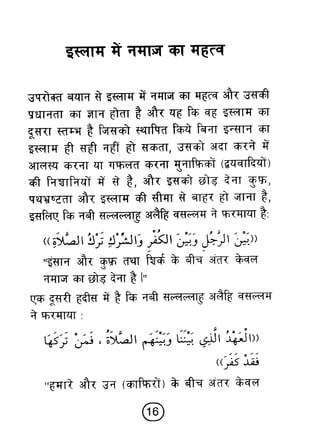 इस्लाम में नमाज़ का महत्व
उपरोक्त बयान से इस्लाम में नमाज का महत्व और उसकी
प्रधानता का ज्ञान होता है और यह कि वह इस्लाम का
दूसरा स्तम्भ है जिसको स्थापित किये बिना इन्सान का
इस्लाम ही सही नहीं हो सकता, उसको अदा करने में
आलस्य करना या गफलत करना मुनाफिकों (द्वयवादियों)
की निशानियों में से है, और इसको छोड़ देना कुफ्र,
पथभ्रष्टता और इस्लाम की सीमा से बाहर हो जाना है,
इसलिए कि नबी सल्लल्लाहु अलैहि वसल्लम ने फरमाया है:
((بَيْنَ الرَّجُلِ وَبَيْنَ الْكُفْرِ وَالشِّرْكِ تَرْكُ الصَّلَاةِ))
"इंसान और कुफ्र तथा शिर्क के बीच अंतर केवल
नमाज का छोड़ देना है।"
एक दूसरी हदीस में है कि नबी सल्लल्लाहु अलैहि वसल्लम
ने फरमाया :
((الْعَهْدُ الَّذِي بَيْنَنَا وَبَيْنَهُمُ الصَّلَاةُ ، فَمَنْ تَرَكَهَا
فَقَدْ كَفَرَ))
"हमारे और उन (काफिरों) के बीच अंतर केवल
16